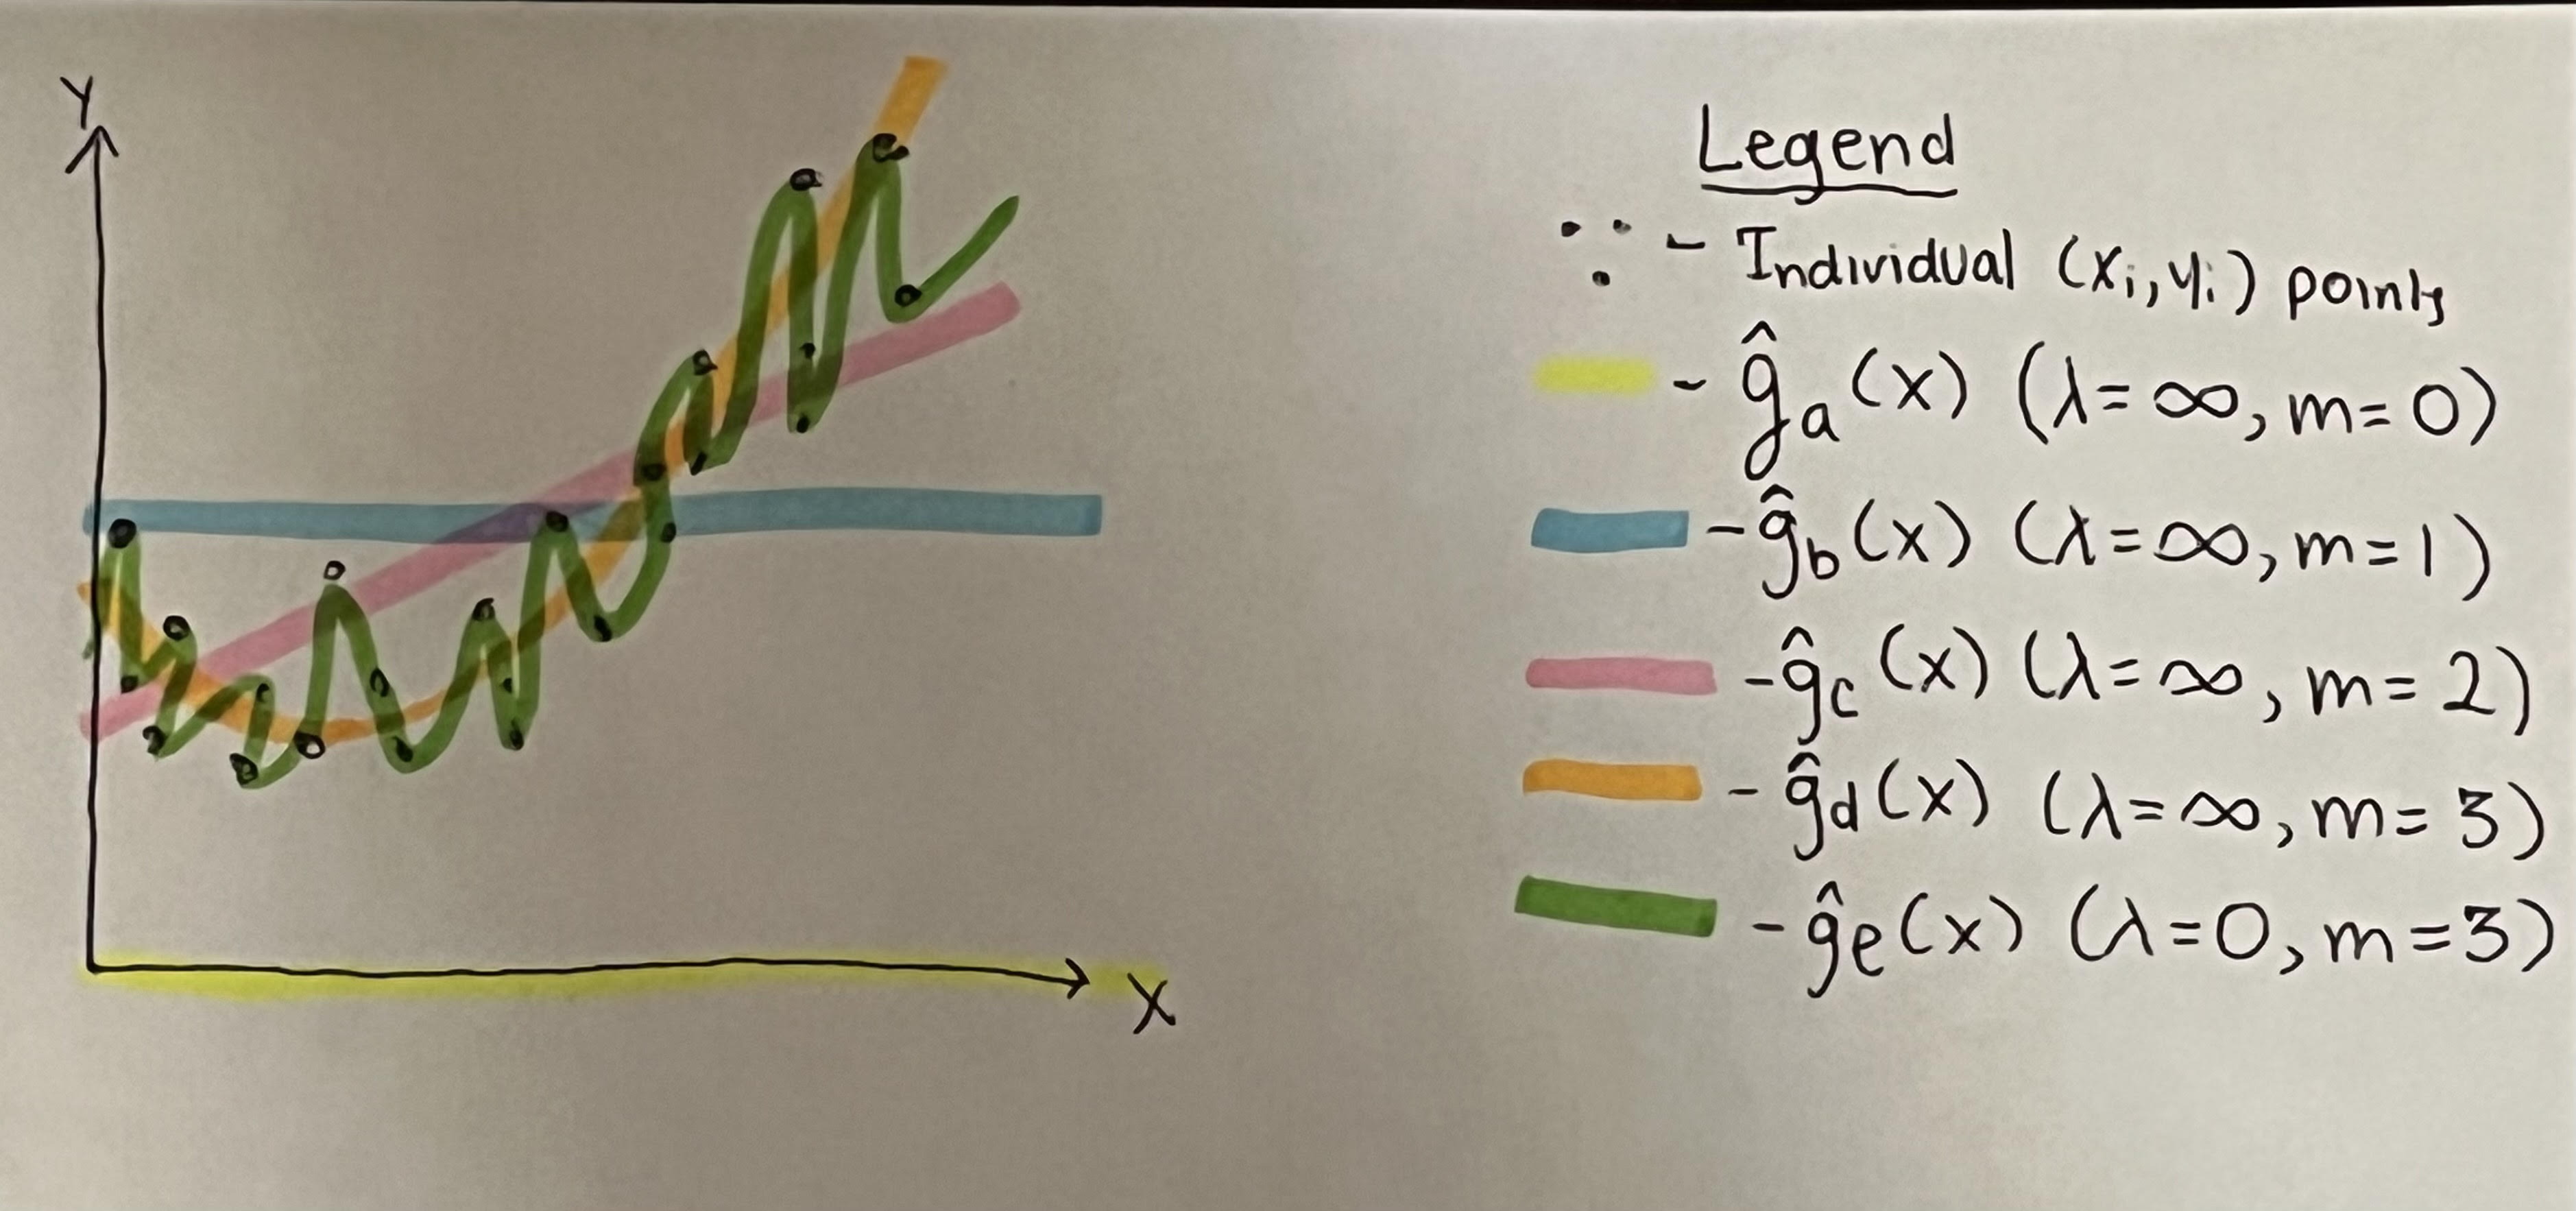 Y
X
Legend
- Individual (xi, yi) points
- ĝa(x) (λ=∞, m=0)
- ĝb(x) (λ=∞, m=1)
- ĝc(x) (λ=∞, m=2)
- ĝd(x) (λ=∞, m=3)
- ĝe(x) (λ=0, m=3)